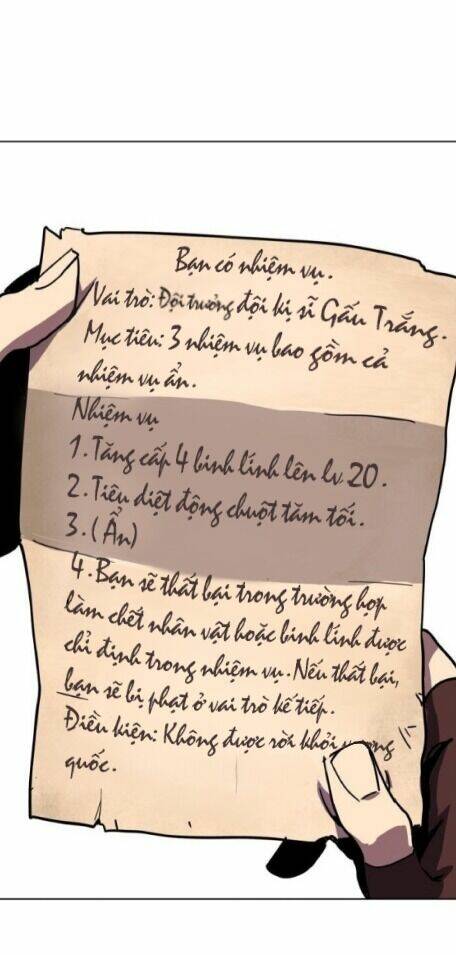 Bạn có nhiệm vụ.
Vai trò: Đội trưởng đội kị sĩ Gấu Trắng.
Mục tiêu: 3 nhiệm vụ bao gồm cả
nhiệm vụ ẩn.
Nhiệm vụ
1. Tăng cấp 4 binh lính lên lv 20.
2. Tiêu diệt động chuột tăm tối.
3. (Ẩn)
4. Bạn sẽ thất bại trong trường hợp
làm chết nhân vật hoặc binh lính được
chỉ định trong nhiệm vụ. Nếu thất bại,
bạn sẽ bị phạt ở vai trò kế tiếp.
Điều kiện: Không được rời khỏi vương
quốc.